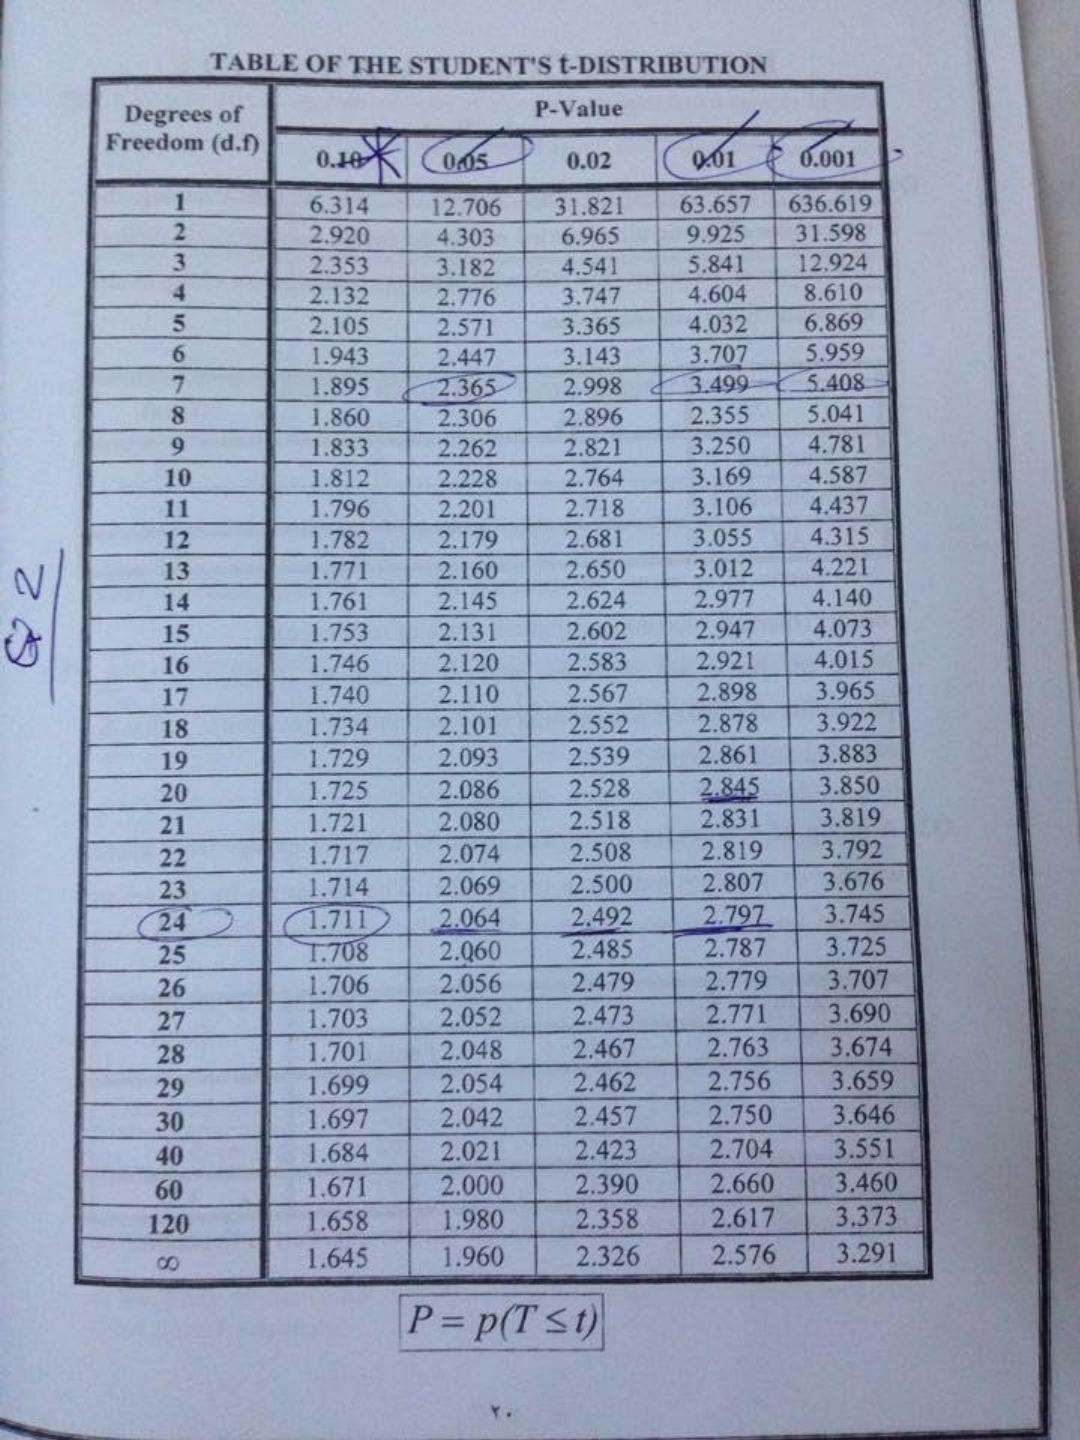 TABLE OF THE STUDENT'S t-DISTRIBUTION
Degrees of Freedom (d.f) P-Value
0.10 0.05 0.02 0.01 0.001
1 6.314 12.706 31.821 63.657 636.619
2 2.920 4.303 6.965 9.925 31.598
3 2.353 3.182 4.541 5.841 12.924
4 2.132 2.776 3.747 4.604 8.610
5 2.105 2.571 3.365 4.032 6.869
6 1.943 2.447 3.143 3.707 5.959
7 1.895 2.365 2.998 3.499 5.408
8 1.860 2.306 2.896 2.355 5.041
9 1.833 2.262 2.821 3.250 4.781
10 1.812 2.228 2.764 3.169 4.587
11 1.796 2.201 2.718 3.106 4.437
12 1.782 2.179 2.681 3.055 4.315
13 1.771 2.160 2.650 3.012 4.221
14 1.761 2.145 2.624 2.977 4.140
15 1.753 2.131 2.602 2.947 4.073
16 1.746 2.120 2.583 2.921 4.015
17 1.740 2.110 2.567 2.898 3.965
18 1.734 2.101 2.552 2.878 3.922
19 1.729 2.093 2.539 2.861 3.883
20 1.725 2.086 2.528 2.845 3.850
21 1.721 2.080 2.518 2.831 3.819
22 1.717 2.074 2.508 2.819 3.792
23 1.714 2.069 2.500 2.807 3.676
24 1.711 2.064 2.492 2.797 3.745
25 1.708 2.060 2.485 2.787 3.725
26 1.706 2.056 2.479 2.779 3.707
27 1.703 2.052 2.473 2.771 3.690
28 1.701 2.048 2.467 2.763 3.674
29 1.699 2.054 2.462 2.756 3.659
30 1.697 2.042 2.457 2.750 3.646
40 1.684 2.021 2.423 2.704 3.551
60 1.671 2.000 2.390 2.660 3.460
120 1.658 1.980 2.358 2.617 3.373
∞ 1.645 1.960 2.326 2.576 3.291
P = p(T ≤ t)
٢٠
Q2